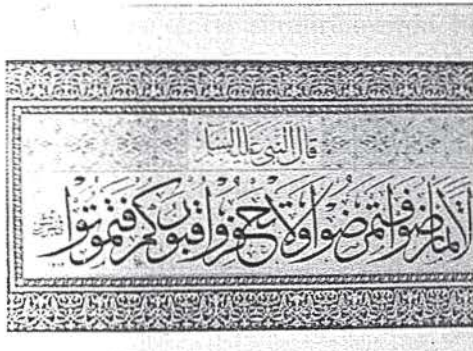 قال النبي عليه السلام
لا تمارضوا فتمرضوا ولا تحفروا قبوركم فتموتوا